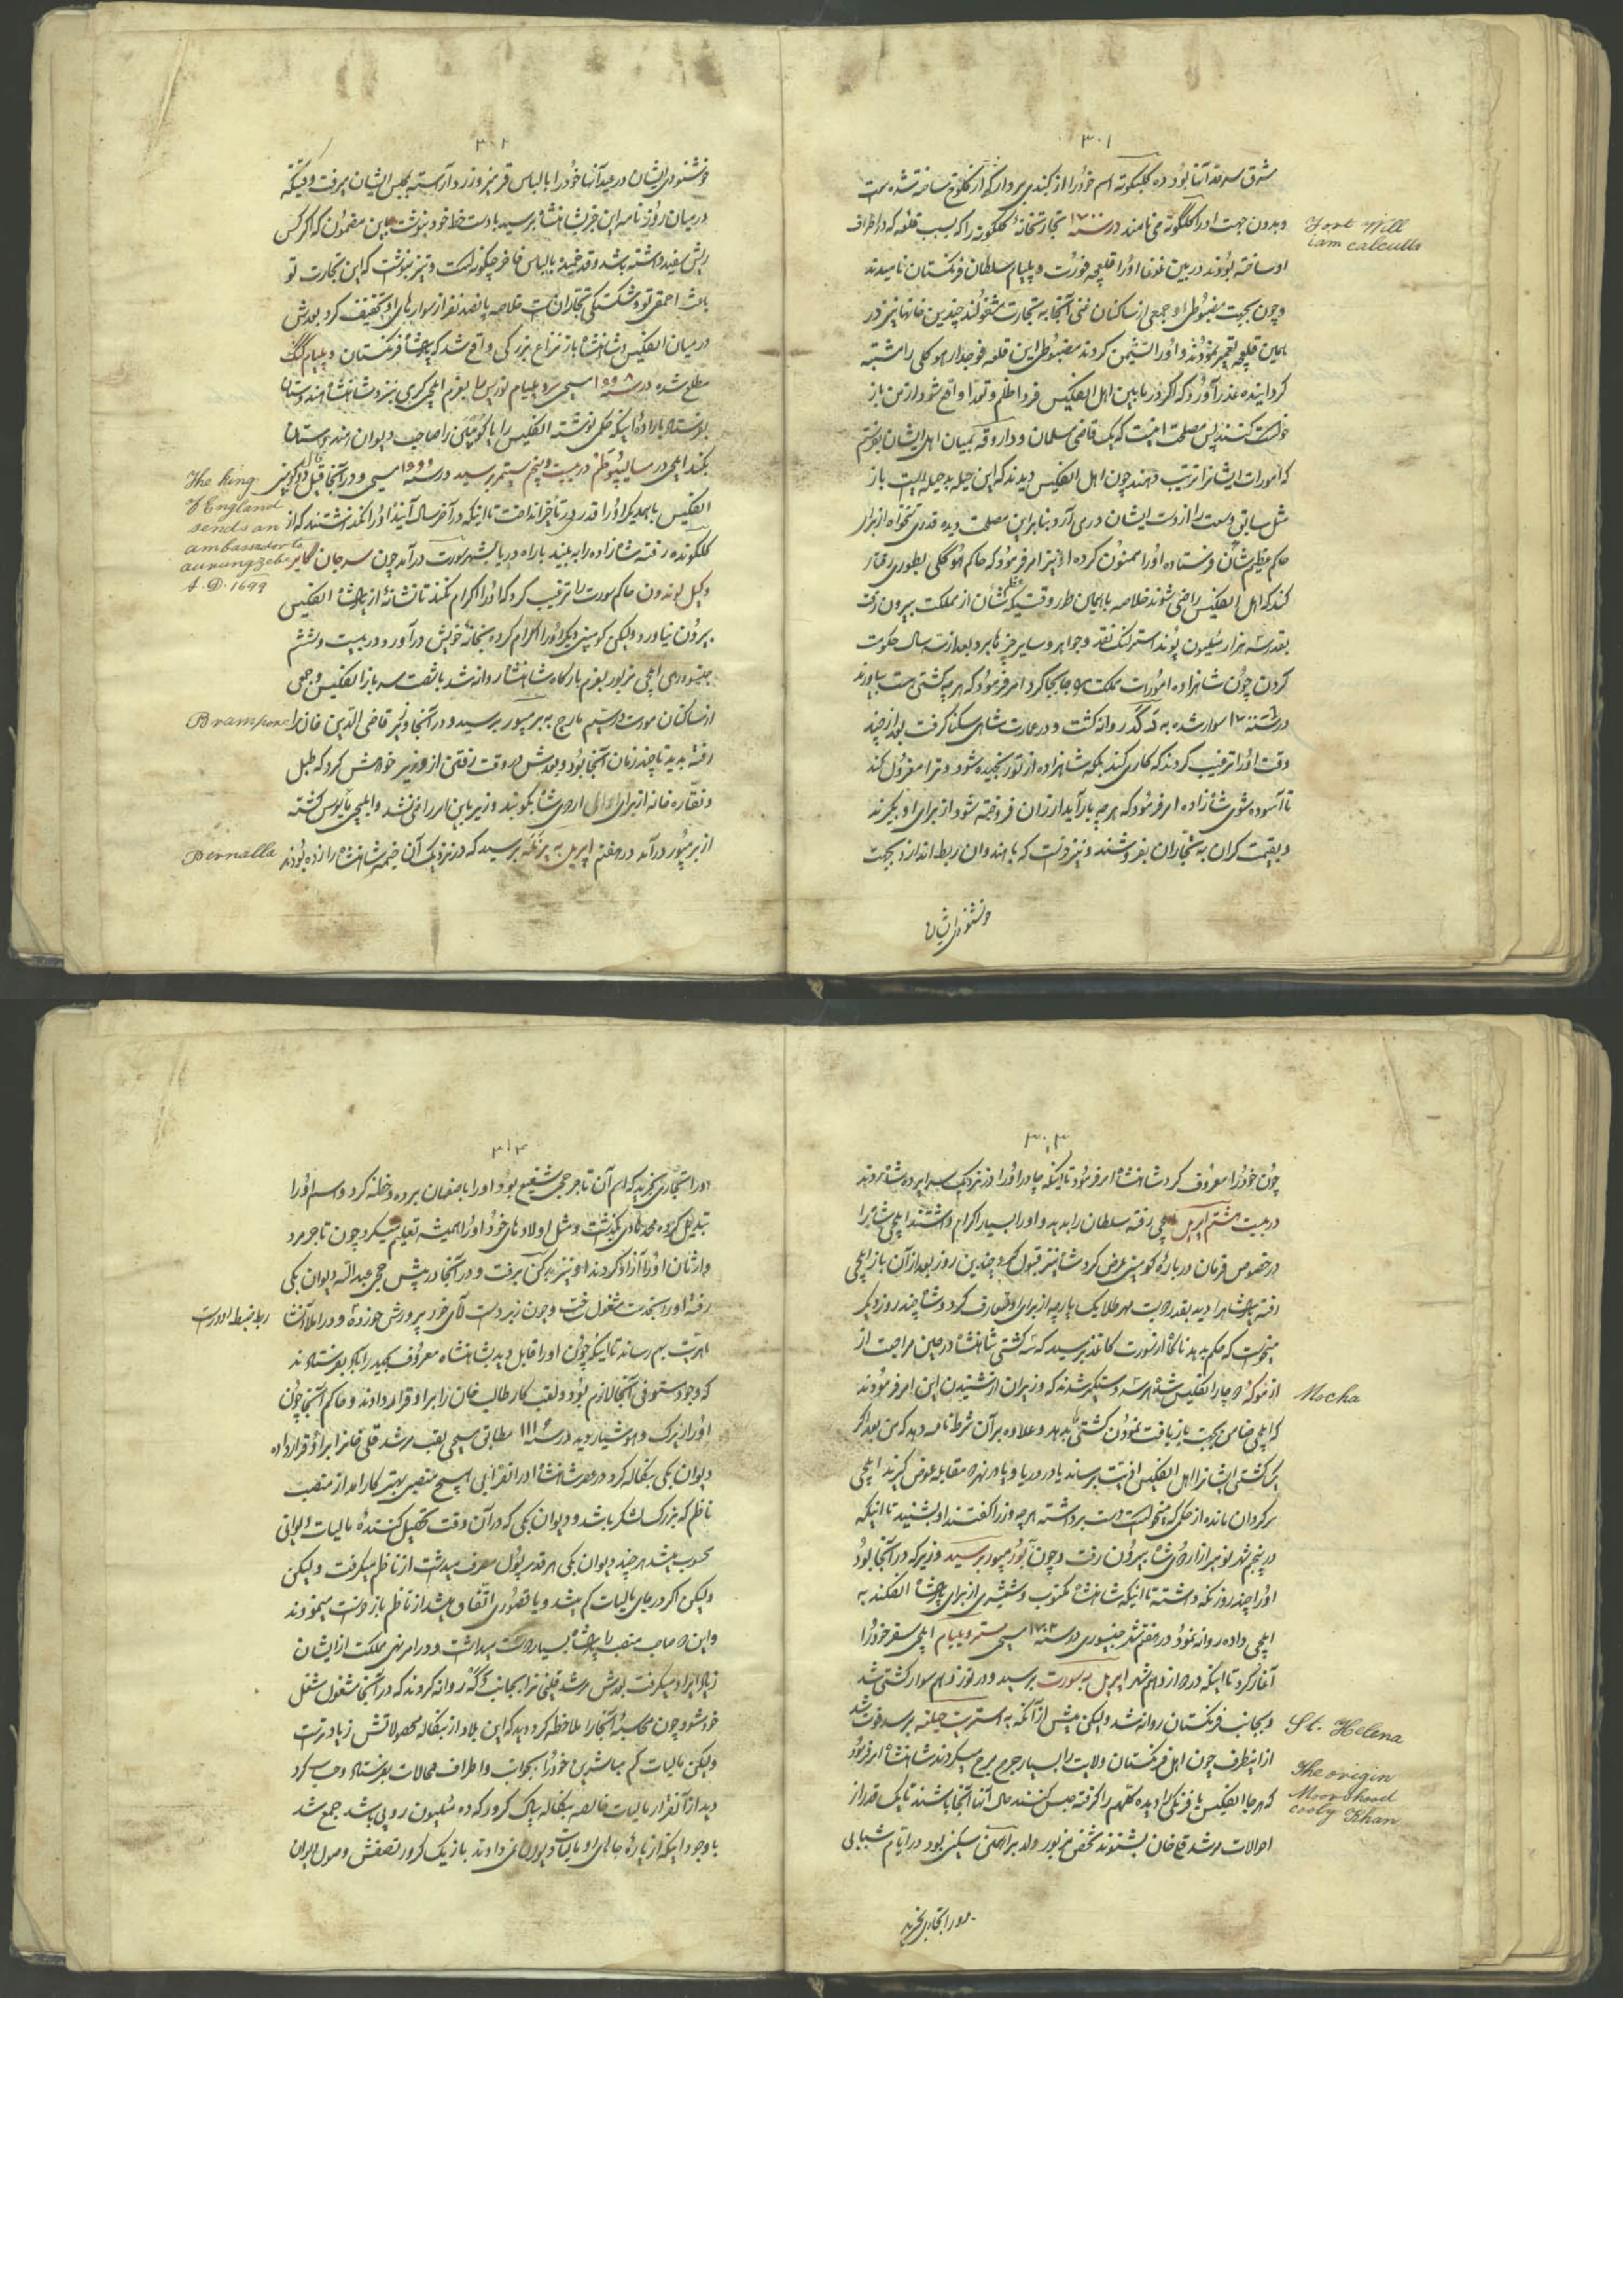 ۳۰۱
شرق سرحد آنها بود ده کلکوته اسم خود را از
و بدون جهت او را کلکوته می نامند در سنه ۱۷۰۰ تجار تجارتخانهٔ کلکوته را که بسبب قلعه که در اطراف
او ساخته بودند در بین غوغا او را قلعچه فورت ویلیام سلطان فرنکستان نامیدند
و چون بجهت مضبوطی او جمعی از ساکنان غنی آنجا به تجارت مشغولند چندین خانها نیز در
همین قلعچه تعمیر نمودند و او را نشیمن کردند مضبوطی این قلعه فوجدار هوکلی را مشتبه
کردانیده عذر آورد که اکر در مابین اهل انکلیس فردا ظلم و تعدا واقع شود از من باز
خواست کنند پس مصلحت اینست که یک قاضی مسلمان و داروغه بمیان اهل ایشان بفرستم
که امورات ایشانرا ترتیب دهند چون اهل انکلیس دیدند که این حیله بدحیله ایست باز
مثل سابق وسعت را از دست ایشان در می آرد بنابراین مصلحت دیده قدری تنخواه از برای
حاکم عظیم شان فرستاده او را ممنون کرده او نیز امر فرمود که حاکم هوکلی بطوری رفتار
کند که اهل انکلیس راضی شوند خلاصه باهمین طور وقتیکه عظیم شان از مملکت بیرون رفت
بقدر سه هزار میلیون پوند استرلنک نقد و جواهر و سایر چیزها برد بعد از سه سال حکومت
کردن چون شاهزاده امورات مملکت را جابجا کرد امر فرمود که هر چه کشتی هست بیاورند
در سنه ۱۷ سوار شده به دکه روانه کشت و در عمارت شاهی سکنا کرفت بعد از چند
وقت او را ترغیب کردند که کاری کند بلکه شاهزاده از تو رنجیده شود و ترا معزول کند
تا آسوده شوی شاهزاده امر فرمود که هر چه بار آید ارزان فروخته شود از برای او بخرند
و بقیمت کران به تجاران بفروشند و نیز خواست که با هندوان ربط اندازد بجهت
خوشنودی ایشان
Fort Will
iam calcutta
۳۰۲
خوشنودی ایشان در عید آنها خود را با لباس قرمز و زرد آراسته بمجلس ایشان میرفت وقتیکه
در میان روزنامه این خبر بشاهنشاه رسید با دست خط خود بنوشت باین مضمون که اکر کس
ریش سفید داشته باشد و قد خمیده با لباس فاخر چکونه است و نیز بنوشت که این تجارت تو
باعث احمقی تو و شکستکی تجاران است خلاصه پانصد نفر از سوارهای او تخفیف کرد بعدش
در میان انکلیس و شاهنشاه باز نزاع بزرکی واقع شد که پادشاه فرنکستان ویلیام کنک
مطلع شده در سنه ۱۶۹۸ مسیحی سر ویلیام نوریس را بعزم ایلچی کری بنزد شاهنشاه هندوستان
بفرستاد باراده اینکه حکمی نوشته انکلیس را یا کومپنی را صاحب دیوان هندوستان
بکند ایلچی در ماسلیپوطم در بیست و پنجم سپتمبر رسید در سنه ۱۶۹۹ مسیحی و در آنجا قبل
انکلیس با همدیکر او را قدری در تأخیر انداخت تا اینکه در آخر سال آینده او را نکذاشتند که از
کلکونده رفته شاهزاده را ببیند با راه دریا بشهر سورت در آمد چون سر جان کایر
وکیل لوندون حاکم سورت را ترغیب کرد که او را اکرام نکند تا نشانهٔ از پادشاه انکلیس
بیرون نیاورد ولیکن کومپنی دیکر او را اکرام کرده بخانهٔ خویش در آورد و در بیست و ششم
جنوری ایلچی مزبور بعزم بارکاه شاهنشاه روانه شد با شصت سرباز انکلیس و جمعی
از ساکنان سورت در سیم مارچ به برمپور برسید و در آنجا وزیر قاضی الدین خان را
رفته بدید تا چند زمان آنجا بود و بعدش در وقت رفتن از وزیر خواهش کرد که طبل
و نقاره خانه از برای اردوی شاه بکوبند وزیر باین امر راضی نشد و ایلچی مأیوس کشته
از برمپور در آمد در هفتم اپریل به پرنله برسید که در نزدیک آن خیمه شاهنشاه را زده بودند
The king
of England
sends an
ambassador to
aurungzebe
A.D. 1699
Brampore
Pernalla
۳۰۳
چون خود را معروف کرد شاهنشاه امر فرمود تا اینکه چادر او را در نزدیک سراپرده شاه زدند
در بیست هشتم اپریل ایلچی رفته سلطان را بدید و او را بسیار اکرام داشتند ایلچی شاه را
در خصوص فرمان دربارهٔ کومپنی عرض کرد شاه نیز قبول کرد چندین روز بعد از آن باز ایلچی
رفته پادشاه را دیده بقدر دویست مهر طلا یک پارچه از برای او تعارف کرد و شاه چند روز دیکر
میخواست که حکم بدهد ناکاه از سورت کاغذ برسید که سه کشتی شاهنشاه در حین مراجعت از
از موکه دچار انکلیس شده هر سه دستکیر شدند که وزیران از شنیدن این امر فرمودند
که ایلچی ضامن بجهت باز یافت نمودن کشتیها بدهد و علاوه بر آن شرط نامه دهد که من بعد اکر
یک کشتی ایشانرا اهل انکلیس اذیت برساند یا در دریا و یا در نهر مقابله عوض کیرند ایلچی
سرکردان مانده از حکمی که میخواست دست برداشته هر چه وزرا کفتند او بشنید تا اینکه
در پنجم شهر نومبر از اردوی شاه بیرون رفت و چون بورمپور برسید وزیر که در آنجا بود
او را چند روز نکه داشته تا اینکه شاهنشاه مکتوب و شمشیری از برای پادشاه انکلند به
ایلچی داده روانه نمود در هفتم شهر جنوری در سنه ۱۷۰۲ مسیحی مستر ویلیام ایلچی سفر خود را
آغاز کرد تا اینکه در دوازدهم شهر اپریل به سورت برسید و در نوزدهم سوار کشتی شد
و بجانب فرنکستان روانه شد ولیکن پیش از آنکه به استرپت حیلنه برسد فوت شد
از اینطرف چون اهل فرنکستان ولایت را بسیار هرج مرج میکردند شاهنشاه امر فرمود
که هر جا انکلیس یا فرنکی را دیده کلهم را کرفته حبس کنند حال آنها آنجا باشند تا یک قدر از
احوالات مرشد قلی خان بشنوند شخص مزبور ولد براهمن مسکینی بود در ایام شبابی
او را تجاری بخرید
Mocha
St. Helena
The origin
Moorshood
cooly Khan
۳۰۴
او را تجاری بخرید که اسم آن تاجر حجی شفیع بود و او را باصفهان برده و ختنه کرد و اسم او را
تبدیل کرده محمد هادی بکذاشت و مثل اولادهای خود او را همیشه تعلیم میکرد چون تاجر مرد
وارثان او را آزاد کردند او نیز بدکن برفت و در آنجا در پیش حجی عبدالله دیوان بکی
رفته او را بخدمت مشغول ساخت و چون زیر دست آقای خود پرورش خورده و در املا انشا
ربط ضبط
مهارت بهم رسانید تا اینکه چون او را قابل دید بشاهنشاه معروف
که وجود مستوفی در آنجا لازم بود و لقب کارطلب خان را بر او قرار دادند و حاکم آنجا چون
او را زیرک و هوشیار دید در سنه مطابق مسیحی لقب مرشد قلی خان را بر او قرار داده
دیوان بکی بنکاله کرد در عهد شاهنشاه اورانقزائب هیچ منصبی بهتر کارآمد از منصب
ناظم که بزرک لشکر باشد و دیوان بکی که در آن وقت تحصیل کنندهٔ مالیات دیوانی
محسوب میشد هر چند دیوان بکی هر قدر پول مصرف میداشت از ناظم میکرفت ولیکن
ولیکن اکر در جای مالیات کم میشد و یا قصوری اتفاق میشد از ناظم بازخواست مینمودند
و این دو صاحب منصب را پادشاه بسیار دوست میداشت و در امر نهی مملکت از ایشان
زیاد ایراد میکرفت بعدش مرشد قلی نیز را بجانب دکه روانه کردند که در آنجا مشغول شغل
خود شود چون محاسبهٔ آنجا را ملاحظه کرد دید که این بلاد از بنکاله محصولاتش زیادتر است
ولیکن مالیات کم مباشرین خود را بجوانب و اطراف محالات بفرستاد و حساب کرد
دید از آنقرار مالیات خالصه بنکاله بیک کرور که ده میلیون روپی باشد جمع شد
با وجود اینکه از پارهٔ جاهای او مالیات دیوان نمی دادند باز یک کرور نصفش وصول دیوان